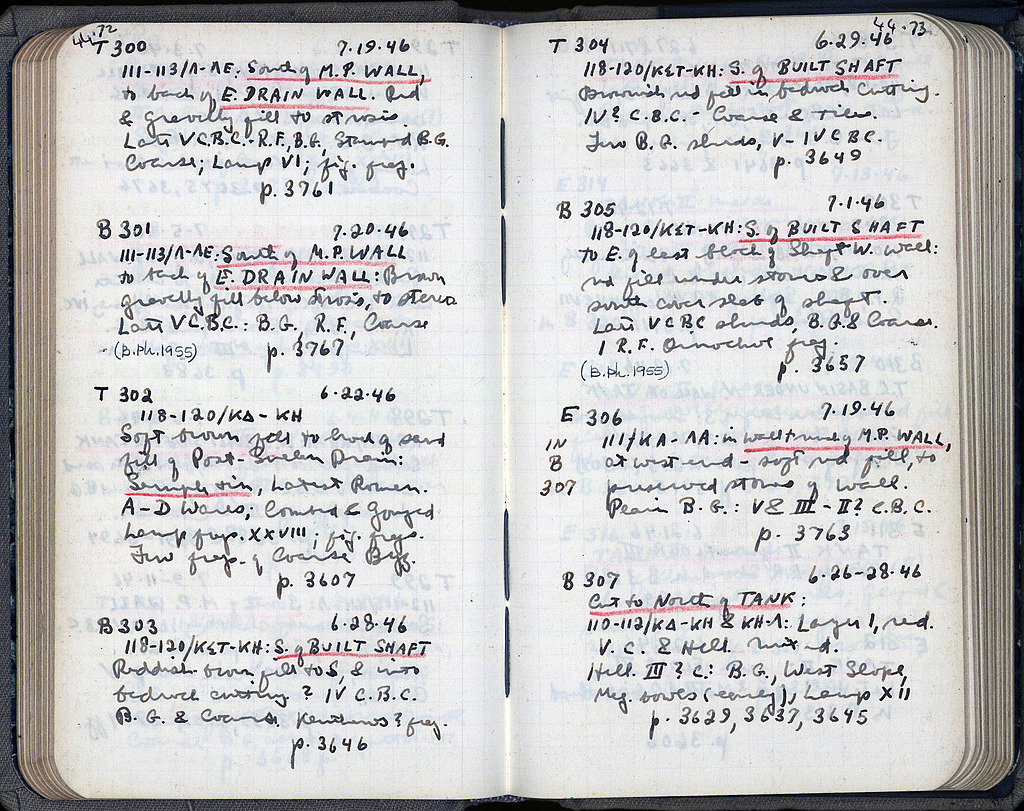 44-72
T 300 7.19.46
111-113/Λ-ΛΕ: South of M.P. WALL,
to back of E. DRAIN WALL. Red
& gravelly fill to strosis.
Late V C.B.C.- R.F., B.G. Stamped B.G.
Coarse; Lamp VI; fig. frag.
p. 3761
B 301 7.20.46
111-113/Λ-ΛΕ: South of M.P. WALL
to back of E. DRAIN WALL: Brown
gravelly fill below strosis, to stereo
Late V C.B.C.: B.G., R.F., Coarse
(B.Ph. 1955) p. 3767
T 302 6-22-46
118-120/ΚΔ - ΚΗ
Soft brown fill to hard sand
fill of Post-Sullan Drain:
Sample tin, Latest Roman.
A-D Wares; Combed & Gouged
Lamp frgs. XXVIII; fig. frgs.
Few frags. of Coarse Byz.
p. 3607
B 303 6.28.46
118-120/ΚΣΤ-ΚΗ: S. of BUILT SHAFT
Reddish brown fill to S, & into
bedrock cutting ? IV C.B.C.
B.G. & Coarse. Kantharos? frag.
p. 3646
44-73
T 304 6-29.46
118-120/ΚΣΤ-ΚΗ: S. of BUILT SHAFT
Brownish red fill in bedrock cutting.
IV? C.B.C. - Coarse & tiles.
Few B.G. sherds, V - IV C BC.
p. 3649
B 305 7.1.46
118-120/ΚΣΤ-ΚΗ: S. of BUILT SHAFT
to E. of east block of Shaft W. wall:
red fill under stones & over
south cover slab of shaft.
Late V C BC sherds, B.G. & Coarse.
1 R.F. Oinochoe frag.
(B.Ph. 1955) p. 3657
E 306 7.19.46
IN 111/ΚΛ-ΛΑ: in wall trench of M.P. WALL,
B at west end - soft red fill, to
307 preserved stones of wall.
Plain B.G.: V & III - II? C.B.C.
p. 3763
B 307 6.26-28.46
Cut to North of TANK:
110-112/ΚΔ-ΚΗ & ΚΗ-Λ: Layer 1, red.
V.C. & Hell. mixed.
Hell. III? C: B.G., West Slope,
Meg. bowls (early), Lamp XII
p. 3629, 3637, 3645